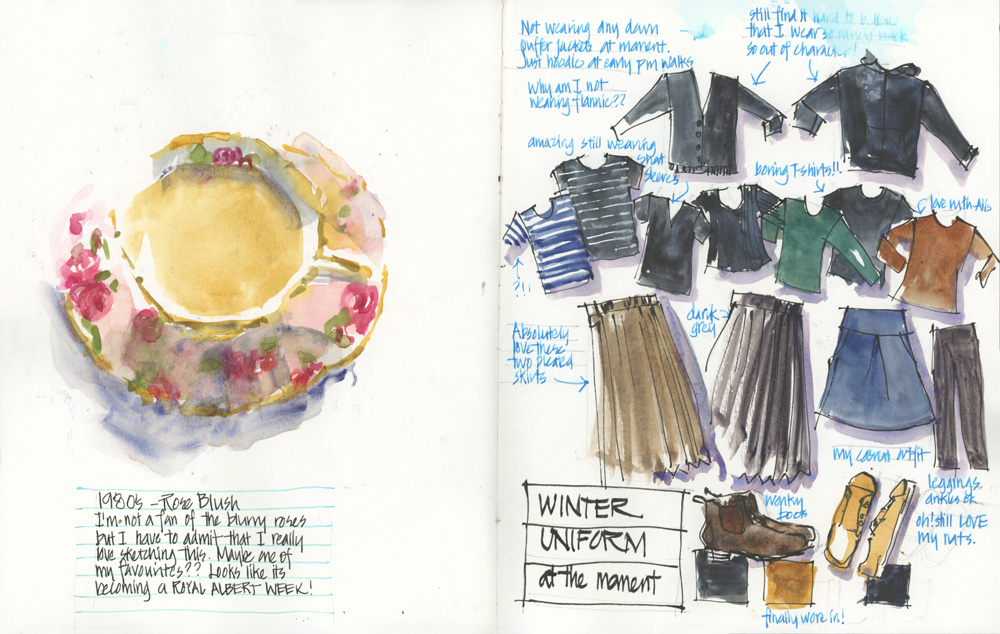 1980s - Rose Blush
I'm not a fan of the blurry roses
but I have to admit that I really
love sketching this. Maybe one of
my favourites?? Looks like its
becoming a ROYAL ALBERT WEEK!
Not wearing any down
puffer jackets at moment.
Just hoodie at early pm walks
Why am I not
wearing flannie??
still find it hard to believe
that I wear so much black
so out of character!
amazing still wearing
short
sleeves
boring T-shirts!!
love with Alis
?!!
Absolutely
love these
two pleated
skirts
dark
grey
my casual outfit
leggings
ankles ok
oh! still LOVE
my
WINTER
UNIFORM
at the moment
wonky
boots
finally wore in!